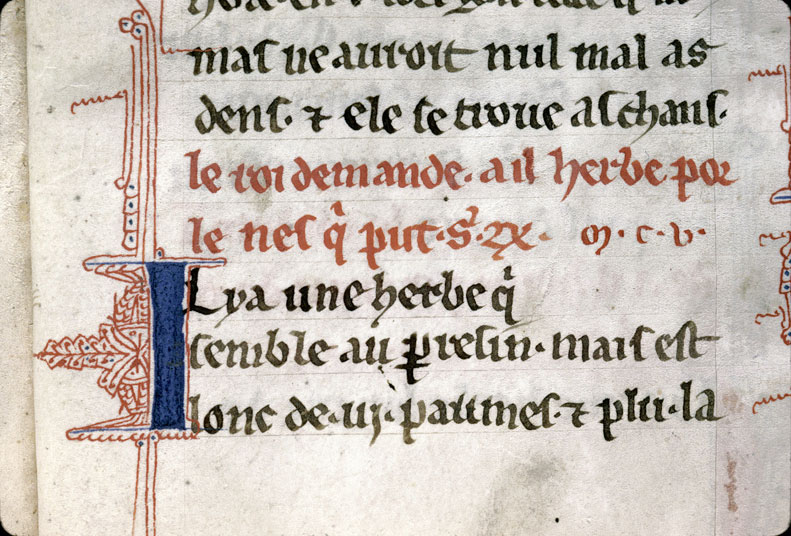 mais ne auroit nul mal as
dens · ⁊ ele se troue as chans ·
le roi demande · a il herbe por
le nes q̃ put · S · ꝝ · M · C · V ·
IL ya une herbe q̃
semble au ꝑresin · mais est
lonc de · iij · paumes · ⁊ plu · la